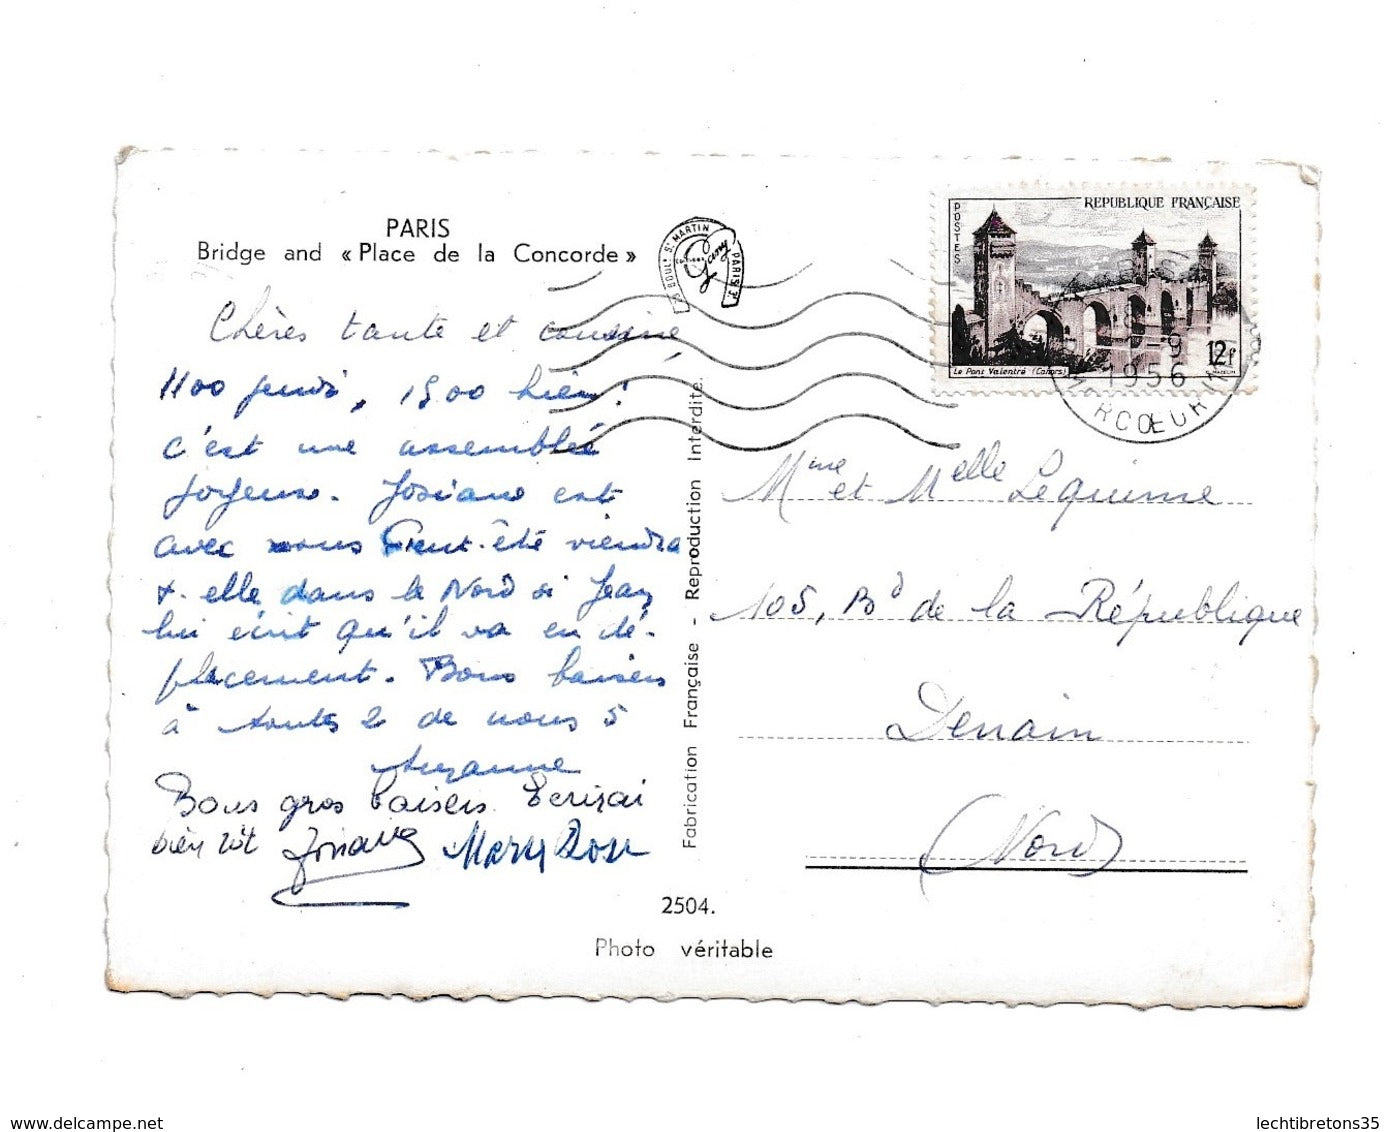 PARIS
Bridge and « Place de la Concorde »
BOUL. ST MARTIN
PARIS 3e
POSTES
REPUBLIQUE FRANÇAISE
12f
Le Pont Valentré (Cahors)
1956
MARCOEURIN
Chères tante et cousine
1100 jeudi, 1500 hier!
c'est une assemblée
joyeuse. Josiane est
avec nous Peut-être viendra
t-elle dans le Nord si Jean
lui écrit qu'il va en dé-
placement. Bons baisers
à toutes 2 de nous 5
Suzanne
Bons gros baisers. Ecrirai
bien tôt Josiane Mary Rose
Fabrication Française - Reproduction Interdite.
Mme et Melle Lequime
105, Bd de la République
Denain
(Nord)
2504.
Photo véritable
delcampe.net
lechtibretons35